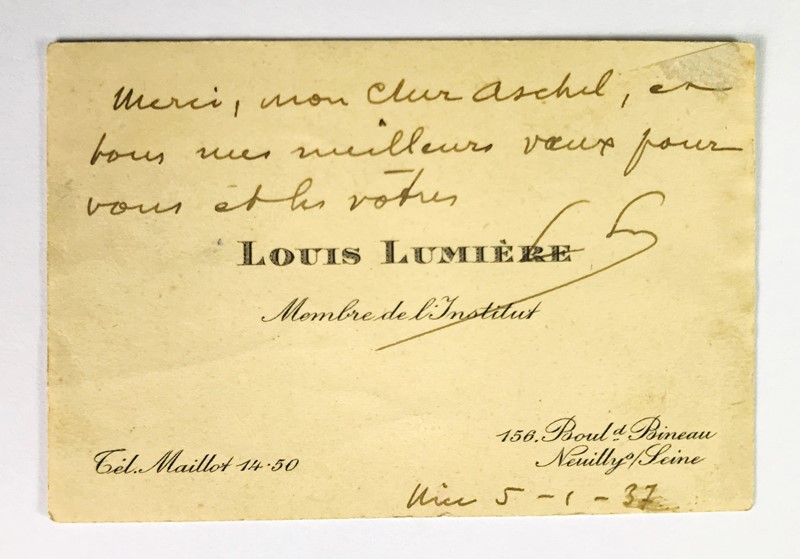 Merci, mon cher Aschel, et
tous mes meilleurs vœux pour
vous et les vôtres
LL
LOUIS LUMIÈRE
Membre de l'Institut
156. Boul.d Bineau
Tél. Maillot 14-50
Neuilly s/Seine
Nice 5-1-37